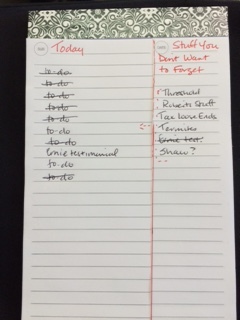 Today
to-do
to-do
to-do
to-do
to-do
to-do
to-do
Ernie testimonial
to-do
to-do
Stuff You
Don't Want
to Forget
Threshold
Roberts Stuff
Tax Loose Ends
Termites
Ernie test.
Shaw?
--